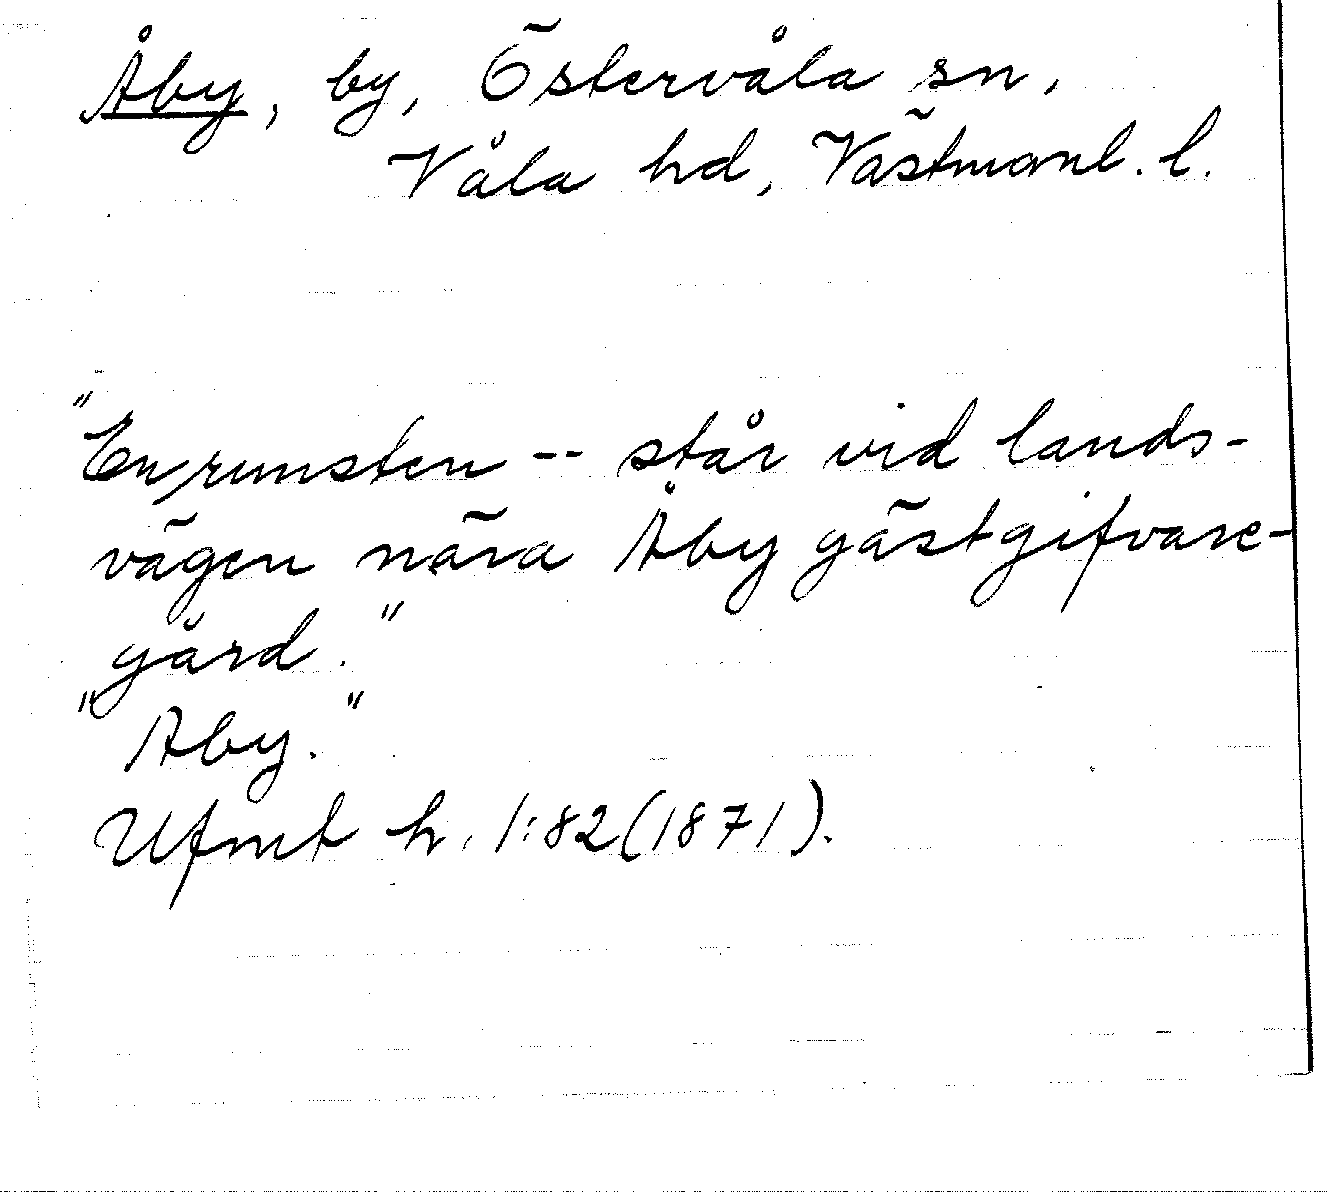 Åby, by, Östervåla sn,
Våla hd, Västmanl. l.
"En runsten -- står vid lands-
vägen nära Åby gästgifvare-
gård."
"Åby."
Ufmt h. 1:82 (1871).